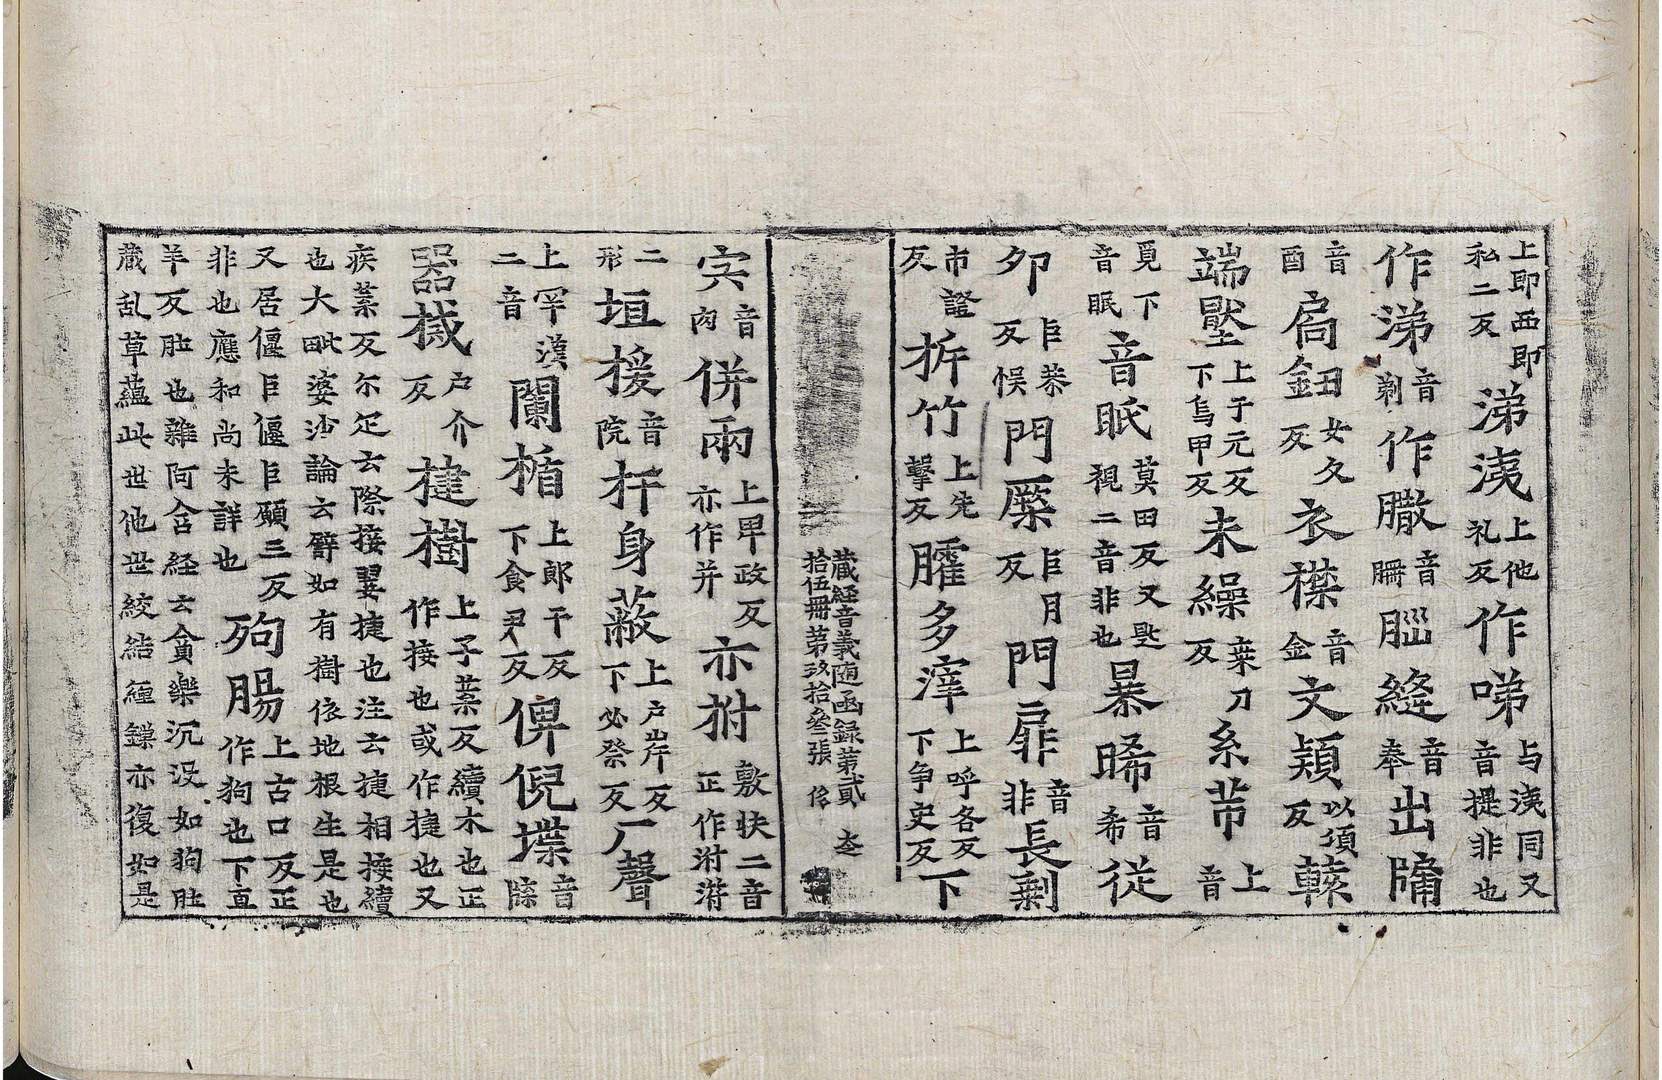 上即西即私二反 涕洟 上他礼反 作㖒 与洟同又音提非也
作涕 音剃 作𦠆 音冊 𦛁縫 音奉 出牗
音酉 扃鈕 田女夂反 衣襟 音金 文熲 以頃反
端堅 上于元反下烏甲反 未繰 桒刀反 系芾 上音
覓下音眠 音眠 莫田反又匙視二音非也 㬥晞 音希 従
夘 巨恭反 悮 門橜 巨月反 門扉 音非 長剩
市證反 栟竹 上先擊反 臛多滓 上呼各反下争史反 下
藏経音義随函録苐貳
拾伍冊第玖拾叄張
宍 音肉 併兩 上卑政反亦作并 亦拊 敷扶二音正作泭㳺
二形 垣援 音院 扞身蔽 上戶岸反下必祭反 厂聲
上罕漢二音 闌楯 上郎干反下食尹反 俾倪堞 音牒
器械 戶介反 揵樹 上子葉反續木也正作接也或作捷也又
疾葉反尓疋云際接翜捷也注云捷相接續
也大毗婆沙論云譬如有樹依地根生是也
又居偃巨偃巨願三反
非也應和尚未詳也 㺃腸 上古口反正作狗也下直
羊反肚也雜阿含経云貪樂沉没如狗肚
藏乱草蘊此世他世絞結緾鏁亦復如是